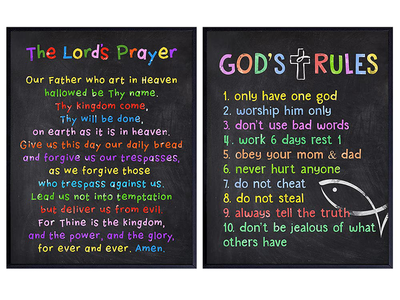 The Lord's Prayer
Our Father who art in Heaven
hallowed be Thy name.
Thy kingdom come,
Thy will be done,
on earth as it is in heaven.
Give us this day our daily bread
and forgive us our trespasses,
as we forgive those
who trespass against us.
Lead us not into temptation
but deliver us from evil.
For Thine is the kingdom,
and the power, and the glory,
for ever and ever. Amen.
GOD'S RULES
1. only have one god
2. worship him only
3. don't use bad words
4. work 6 days rest 1
5. obey your mom & dad
6. never hurt anyone
7. do not cheat
8. do not steal
9. always tell the truth
10. don't be jealous of what
others have